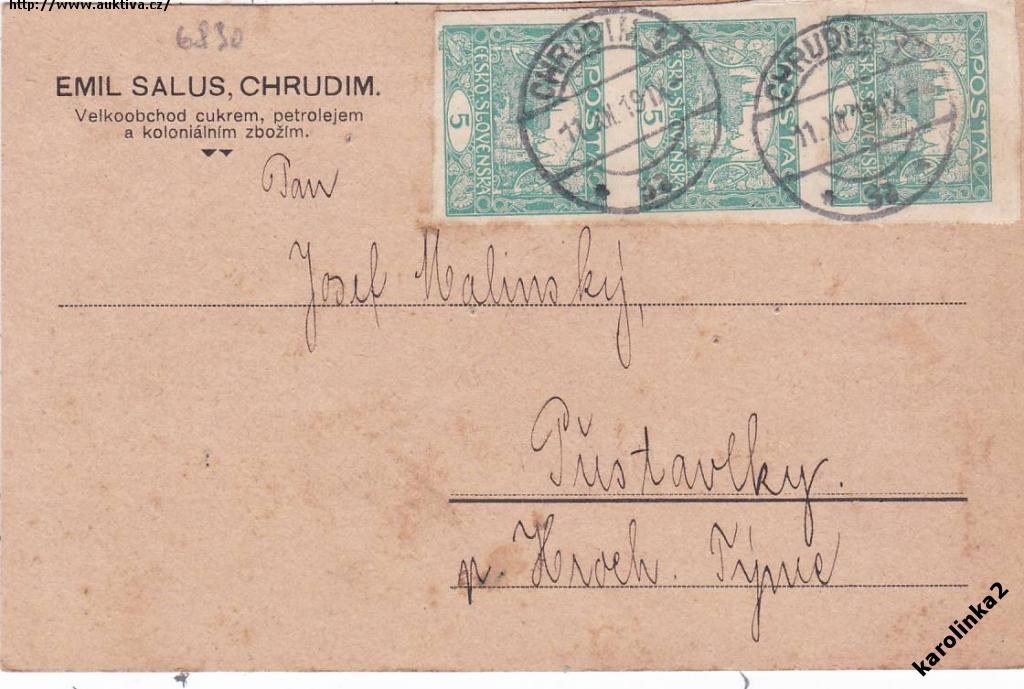 http://www.auktiva.cz/
6830
EMIL SALUS, CHRUDIM.
Velkoobchod cukrem, petrolejem
a koloniálním zbožím.
ČESKO-SLOVENSKÁ
POŠTA
5
ČESKO-SLOVENSKÁ
POŠTA
5
ČESKO-SLOVENSKÁ
POŠTA
5
CHRUDIM 1
11.XII.19.IX
5a
CHRUDIM 1
11.XII.19.IX
5a
Pan
Josef Malinský,
Přestavlky.
p. Hroch. Týnec
karolinka2